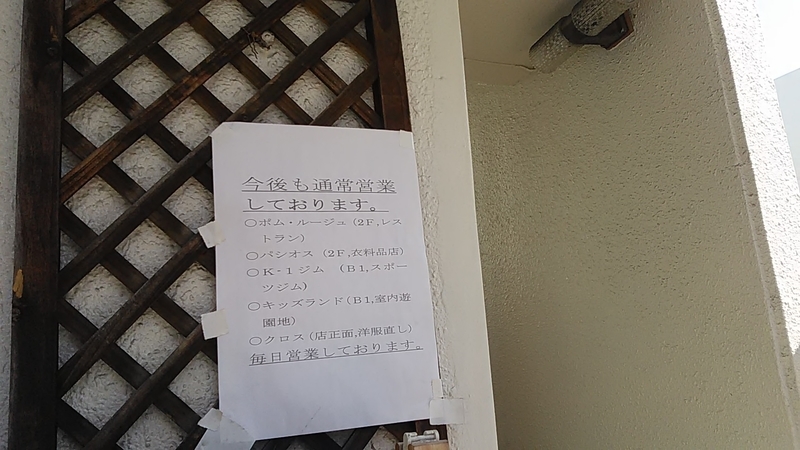 今後も通常営業
しております。
○ポム・ルージュ(2F,レス
トラン)
○パシオス (2F,衣料品店)
○K-1ジム (B1,スポー
ツジム)
○キッズランド(B1,室内遊
園地)
○クロス(店正面,洋服直し)
毎日営業しております。